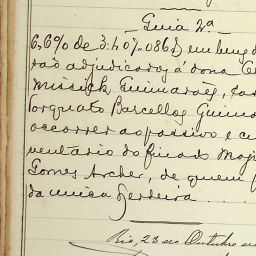 Guia 2ª
6,6% de 3:407.086$ em lug
rão adjudicaras á dona
Missick Guimaraes, ca
Torquato Barcellos Guima
occorrer ao passivo e cu
ventario do finado Maj
Gomes Archer, de quem f
da unica herdeira
Rio, 23 de Outubro